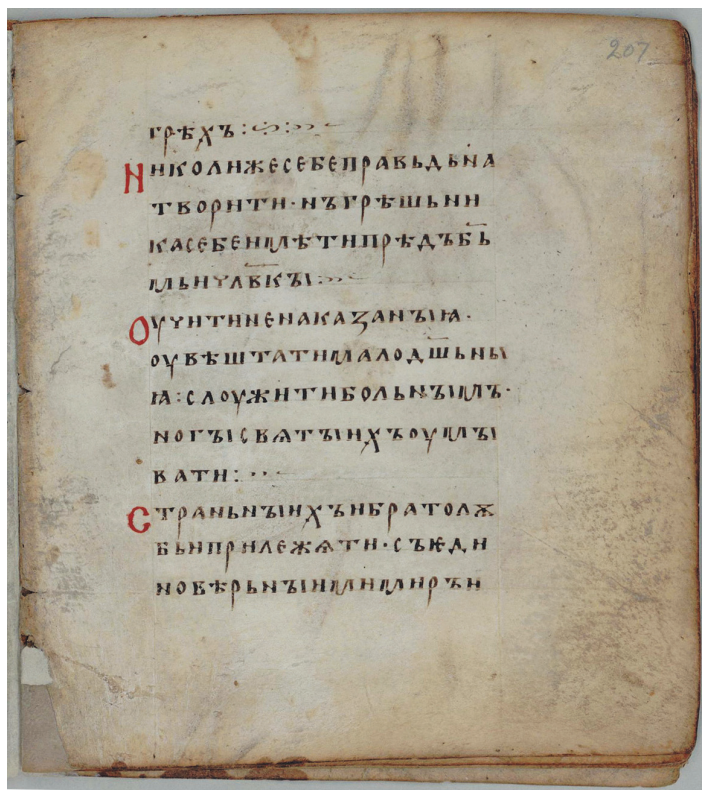 207
грѣхъ:
Николижесебеправьдьна
творити·нъгрѣшьни
касебеимѣтипрѣдъб҃ь
мьичл҃вкꙑ:
Оучитиненаказанꙑꙗ·
оувѣштатималодш҃ьнꙑ
ꙗ:слоужитибольнꙑимъ·
ногꙑсвѧтꙑихъоумꙑ
вати:
Страньнꙑихъибратолѫ
бьиприлежѧти·съѥди
новѣрьнꙑимимиръи